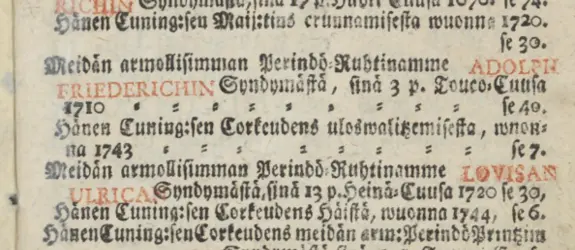 RICHIN Syndymästä, sinä 17 p. Huhti Cuusa 1676. se 74.
Hänen Cuning:sen Maij:tins cruunamisesta wuonna 1720.
se 30.
Meidän armollisimman Perindö-Ruhtinamme ADOLPH
FRIEDERICHIN Syndymästä, sinä 3 p. Touco-Cuusa
1710 se 40.
Hänen Cuning:sen Corkeudens uloswalitzemisesta, wuon-
na 1743 se 7.
Meidän armollisimman Perindö-Ruhtinamme LOVISAN
ULRICAN Syndymästä, sinä 13 p. Heinä-Cuusa 1720 se 30,
Hänen Cuning:sen Corkeudens Häistä, wuonna 1744, se 6.
Hänen Cuning:sen Corkeudens meidän arm: Perindö Printzim